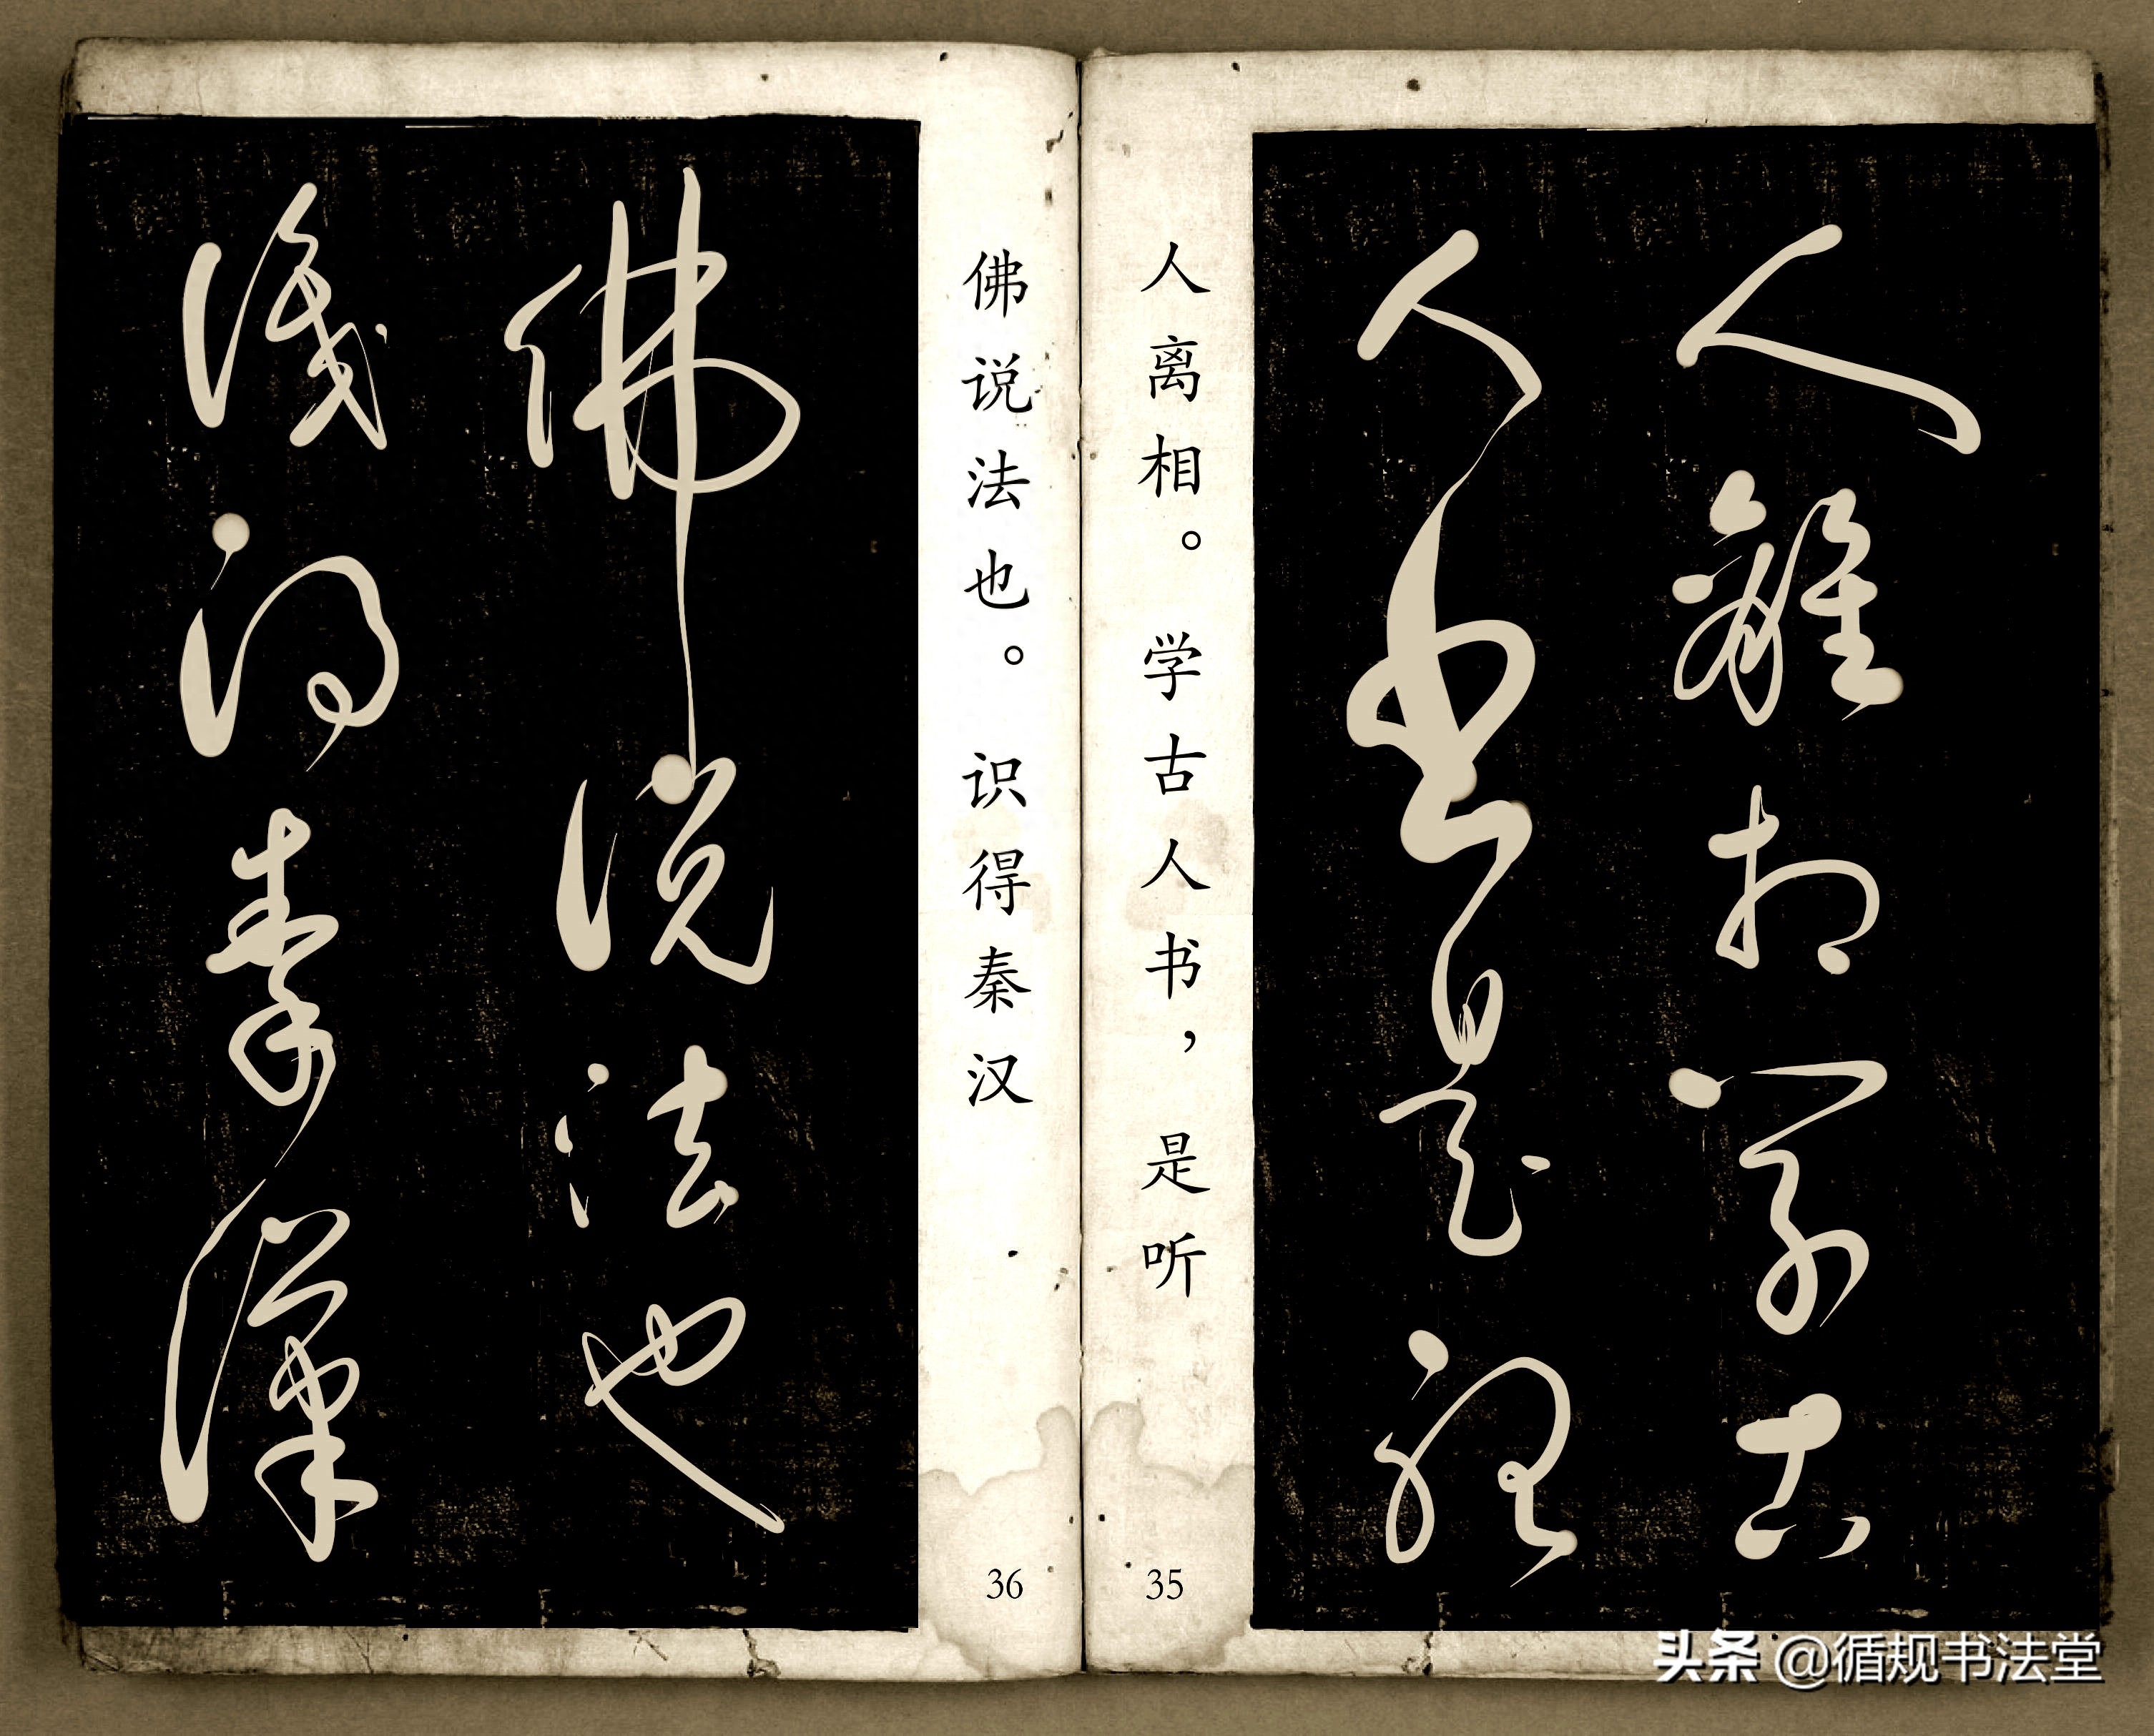 人離相學古
人書是聽
人离相。学古人书，是听
35
佛說法也
識得秦漢
佛说法也。识得秦汉
36
头条 @循规书法堂